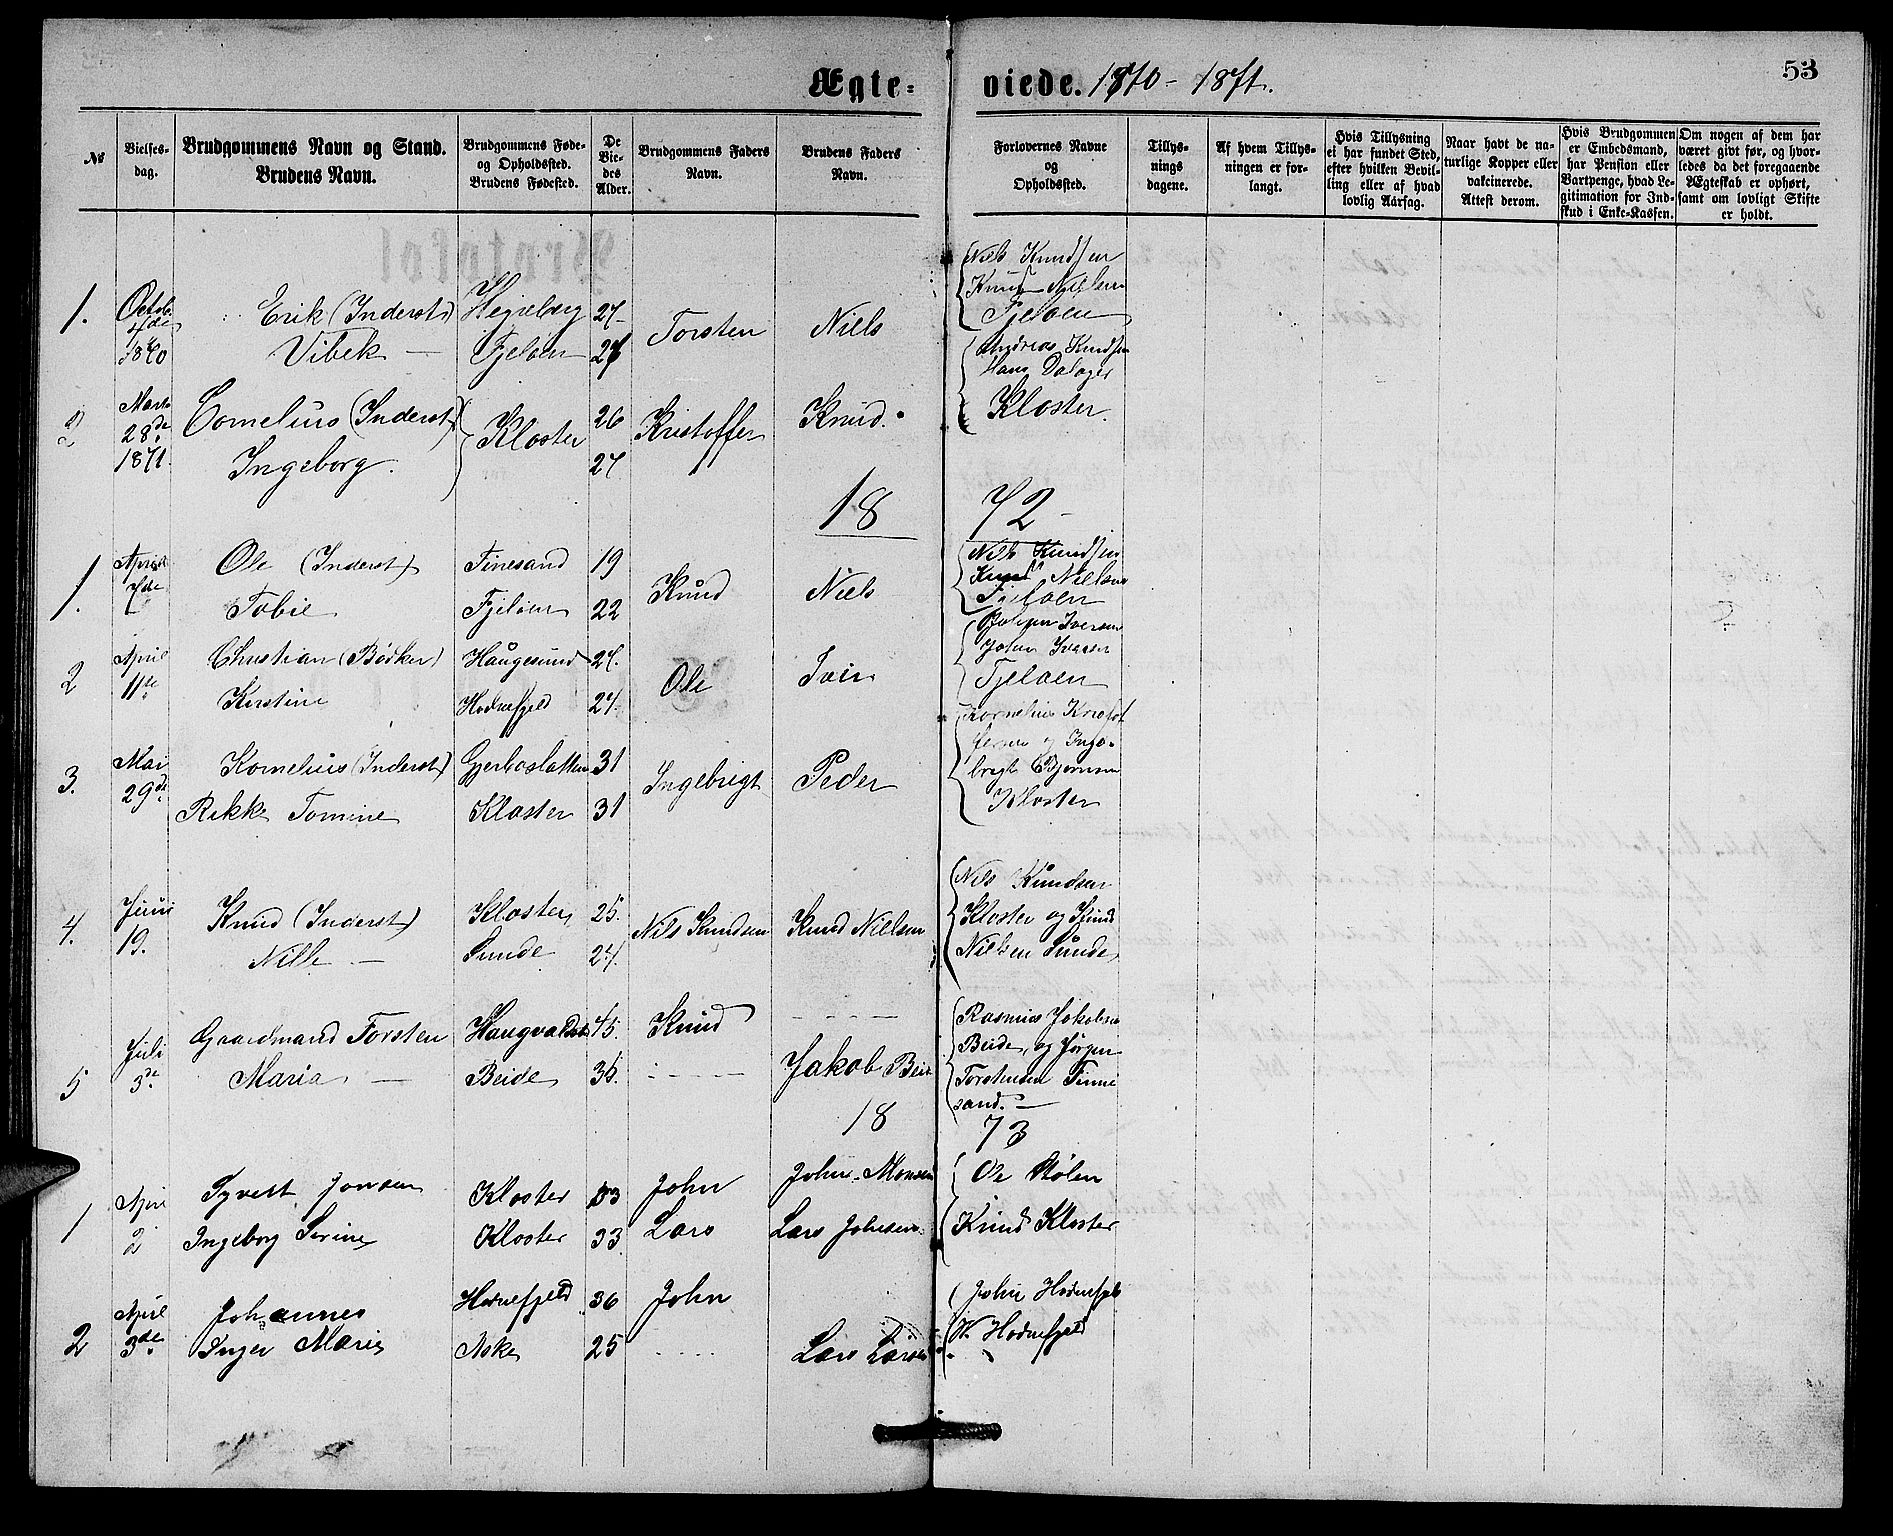 Ægte-viede. 1870 - 1871.
53
No
Vielses-
dag.
Brudgommens Navn og Stand.
Brudens Navn.
Brudgommens Føde-
og Opholdssted.
Brudens Fødested.
De
Vie-
des
Alder.
Brudgommens Faders
Navn.
Brudens Faders
Navn.
Forlovernes Navne
og
Opholdssted.
Tillys-
nings
dagene.
Af hvem Tillys-
ningen er for-
langt.
Hvis Tillysning
ei har fundet Sted,
efter hvilken Bevil-
ling eller af hvad
lovlig Aarsag.
Naar havt de na-
turlige Kopper eller
vakcinerede.
Attest derom.
Hvis Brudgommen
er Embedsmand,
har Pension eller
Vartpenge, hvad Le-
gitimation for Ind-
skud i Enke-Kassen.
Om nogen af dem har
været givt før, og hvor-
ledes da det foregaaende
Ægteskab er ophørt,
samt om lovligt Skifte
er holdt.
1. Octob. Erik (Inderst) Hegreberg 27 Torsten Niels
1870 Vibek — Fjeløen 27
Nils Knudsen
Knud Nielsen
Fjeløen
2 Marts 28de 1871. Cornelius (Inderst) Kloster 26 Kristoffer Knud.
Ingeborg. 27
Andreas Knudsen
Hans Dalager
Kloster.
18 72
1. April 7de Ole (Inderst) Finesand 19 Knud Niels
Tobie Fjeløen 22
Nils Knudsen
Knud Nielsen
Fjeløen
2 April 11te Christian (Bødker) Haugesund 27. Ole Iver
Kirstine Hodnefjeld 27.
Iversen
John Iversen
Fjeløen
3. Mai 29de Kornelius (Inderst) 31 Ingebrigt Peder
Rikke Tomine Kloster 31
Kornelius Kristof
fersen og Inge-
brigt Bjørnsen
Kloster
4. Juni 19. Knud (Inderst) Kloster 25. Nils Knudsen Knud Nielsen
Nille — Sunde 27.
Nils Knudsen
Kloster og Knud
Nielsen Sunde
5 Juli 3de Gaardmand Torsten Haugvaldst 45. Knud
Maria — Beide 35. Jakob Beid
Rasmus Jakobsen
Beide, og Jørgen
Torstensen Finne
sand. —
18 73
1 April 2 Syvert Jonsen Kloster 33 John John Monsen
Ingeborg Serine Kloster 33 Lars Lars Johnsen
Ole Stølen
Knud Kloster
2 April 3de Johannes Hodnefjeld 36 John
Inger Marie Aske 25 Lars Larsen
John Hodnefjeld
Hodnefjeld